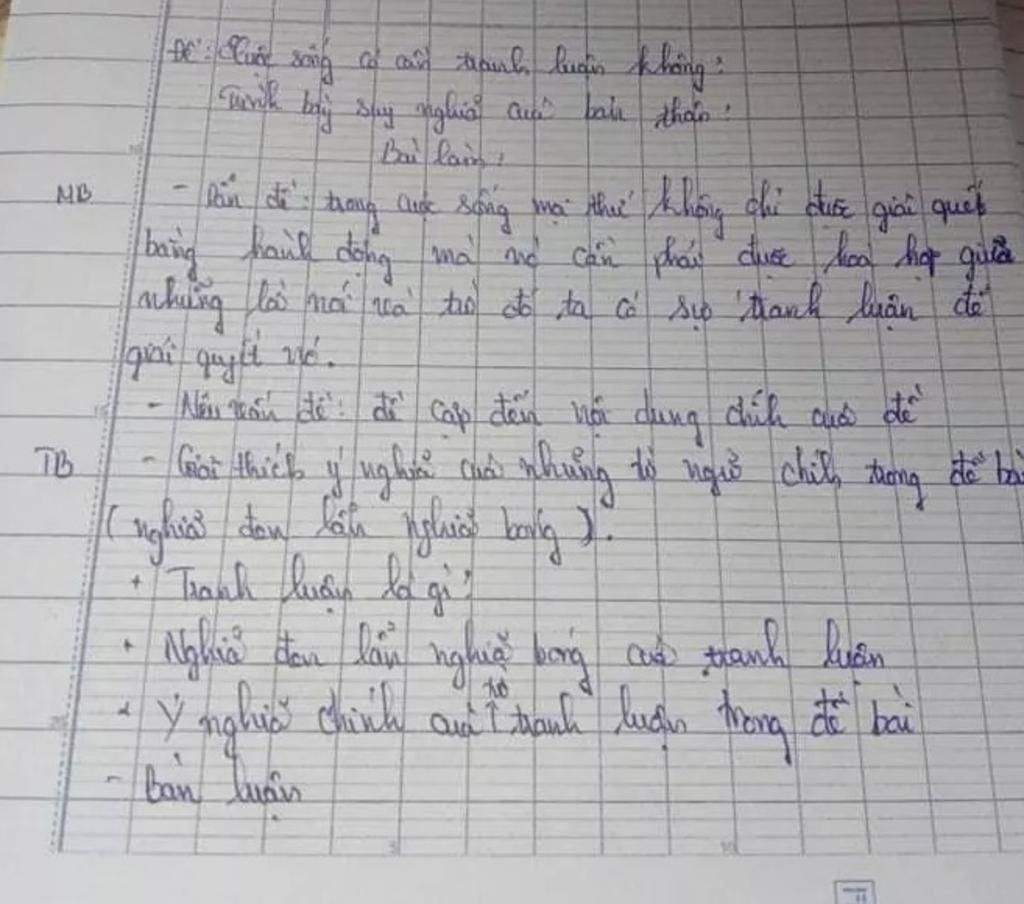 Đề: Cuộc sống có cần tranh luận không?
Trình bày suy nghĩ của bản thân?
Bài làm:
MB - Dẫn dề: trong cuộc sống mọi thứ không chỉ được giải quyết
bằng hành động mà nó cần phải được hoà hợp giữa
những lời nói và từ đó ta có sự tranh luận để
giải quyết nó.
- Nêu vấn đề: đề cập đến nội dung chính của đề
TB - Giải thích ý nghĩa của những từ ngữ chính trong đề bài
(nghĩa đen lẫn nghĩa bóng).
+ Tranh luận là gì?
+ Nghĩa đen lẫn nghĩa bóng của tranh luận
+ Ý nghĩa chính của từ tranh luận trong đề bài
- Bàn luận